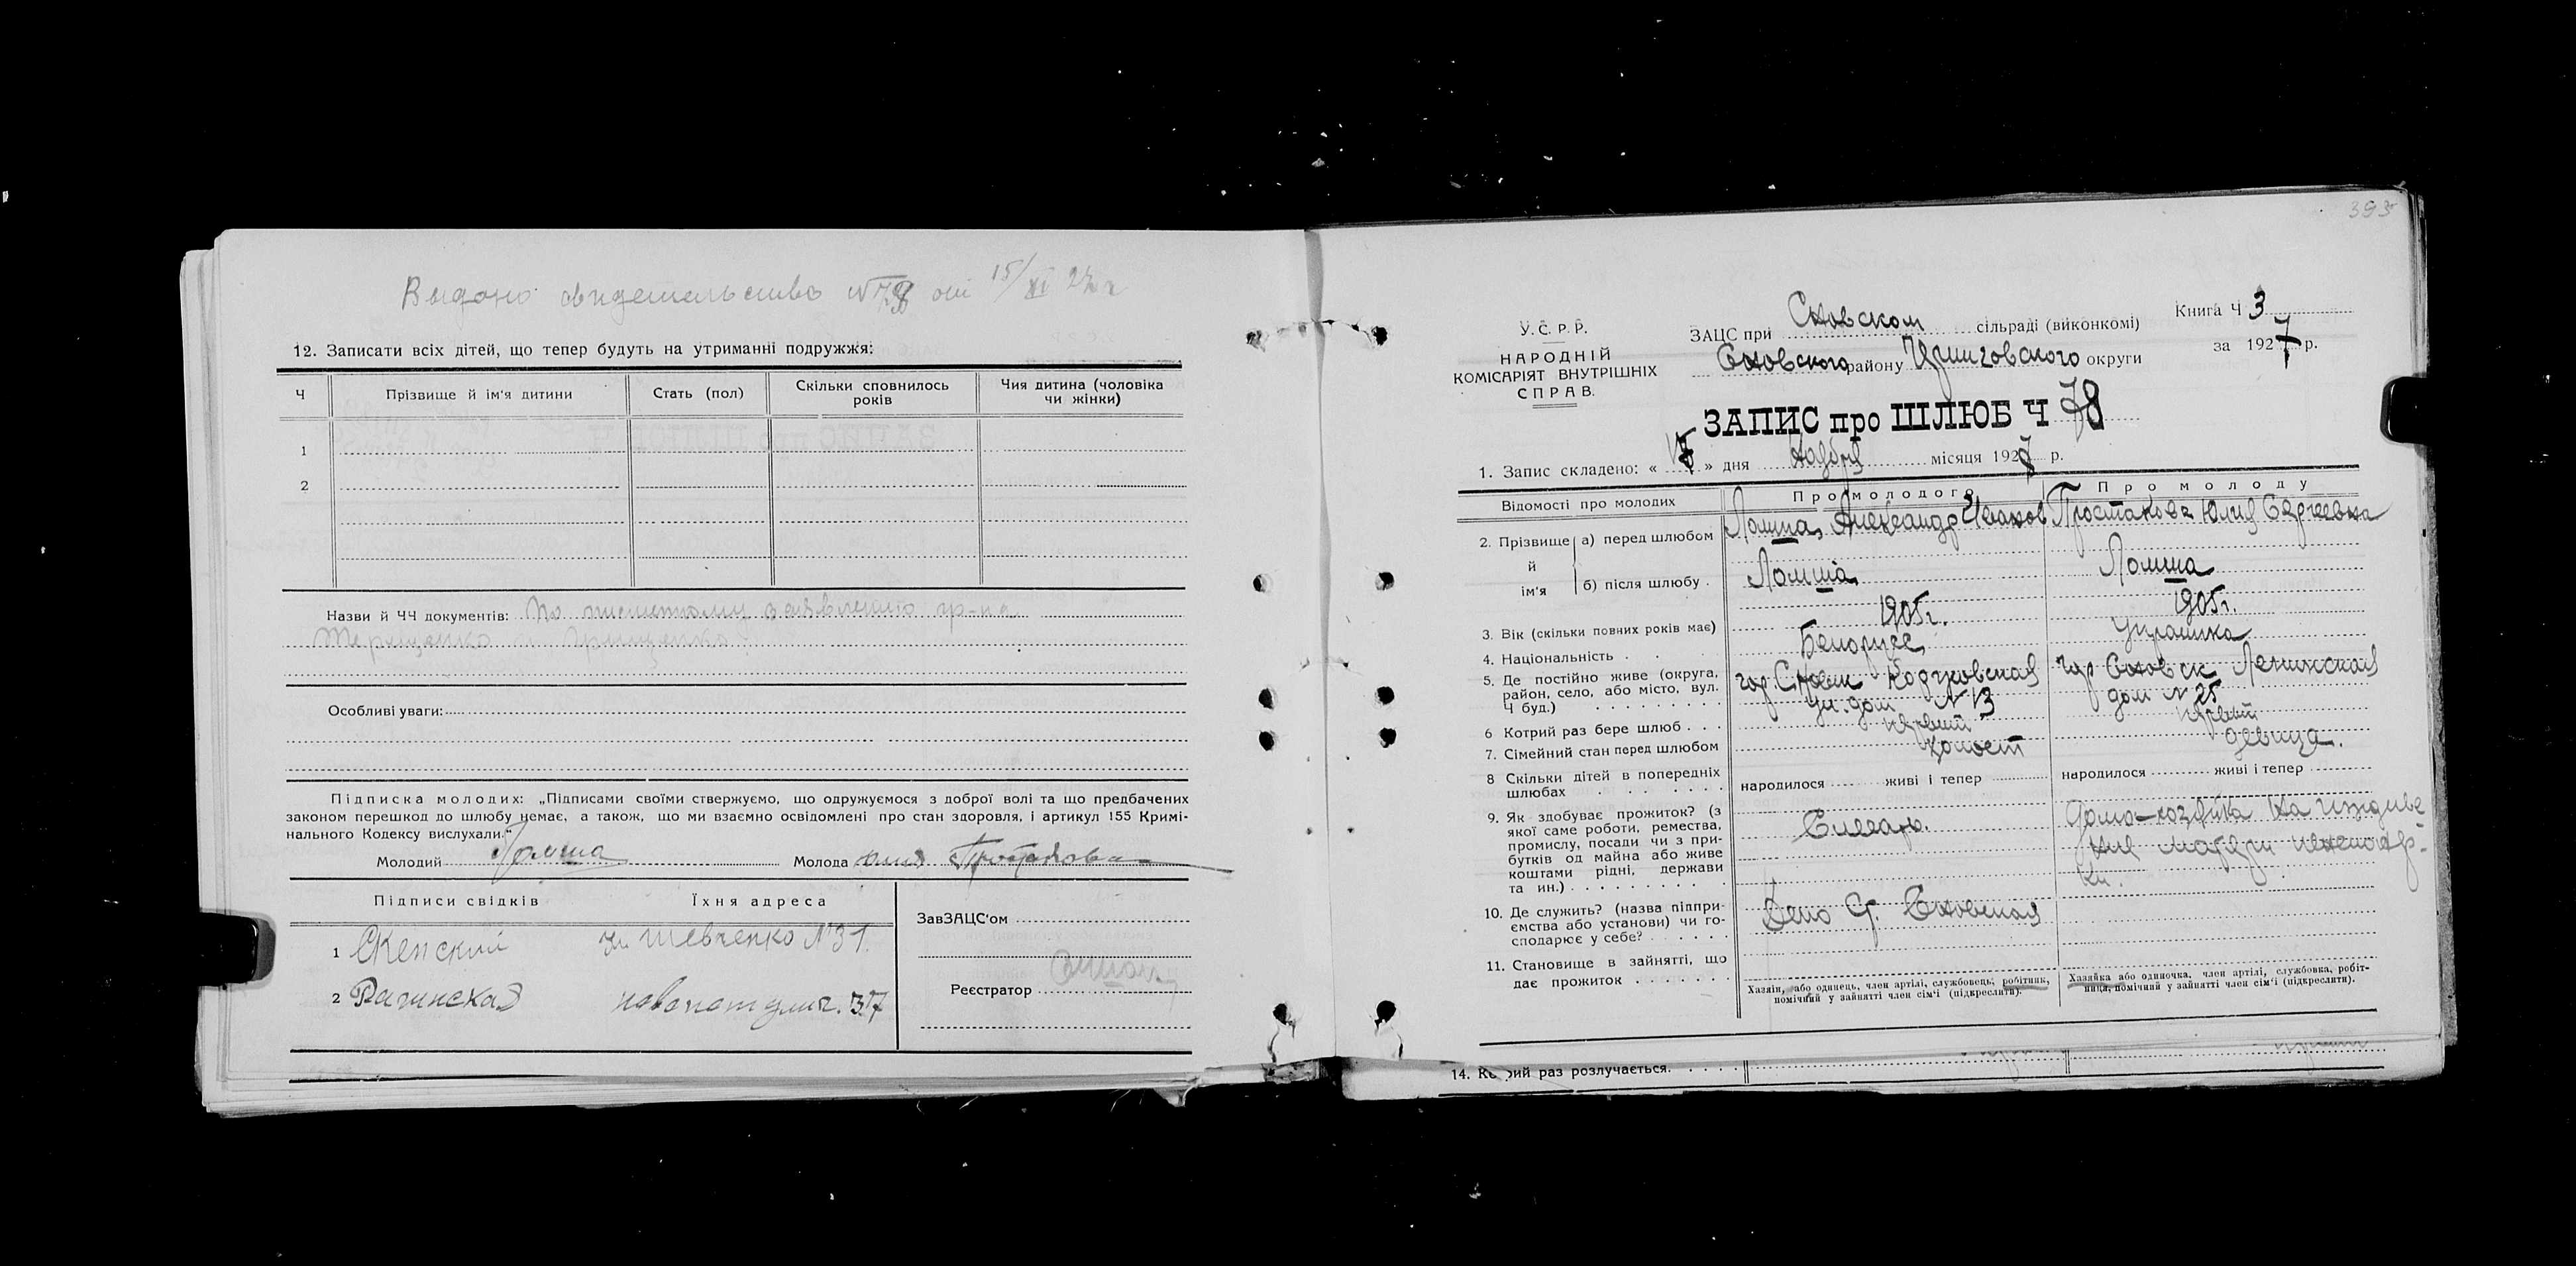 Выдано свидетельство №78 от 15/XI 27 г
12. Записати всіх дітей, що тепер будуть на утриманні подружжя:
Ч Прізвище й ім'я дитини Стать (пол) Скільки сповнилось років Чия дитина (чоловіка чи жінки)
1
2
Назви й ЧЧ документів: По заявлению гр-на
Терещенко и Грищенко
Особливі уваги:
Підписка молодих: „Підписами своїми ствержуємо, що одружуємося з доброї волі та що предбачених
законом перешкод до шлюбу немає, а також, що ми взаємно освідомлені про стан здоровля, і артикул 155 Кримі-
нального Кодексу вислухали."
Молодий Ломша Молода Юлия Простакова
Підписи свідків Їхня адреса
1 Скенский Ул Шевченко №31.
2 Рагинская 37
ЗавЗАЦС'ом
Реєстратор
393
У. С. Р. Р.
НАРОДНІЙ
КОМІСАРІЯТ ВНУТРІШНІХ
СПРАВ.
ЗАЦС при Сновском сільраді (виконкомі)
Сновского району Черниговского округи
Книга Ч 3
за 1927 р.
ЗАПИС про ШЛЮБ Ч 78
1. Запис складено: « 15 » дня Ноября місяця 1927 р.
Відомості про молодих Про молодого Про молоду
2. Прізвище й ім'я а) перед шлюбом Ломша Александр Иванов Простакова Юлия Сергеевна
б) після шлюбу Ломша Ломша
3. Вік (скільки повних років має) 1905г. 1905г.
4. Національність Белорусс Украинка
5. Де постійно живе (округа,
район, село, або місто, вул.
Ч буд.) гор. Сновск ул. дом №13 гор Сновск Ленинская дом №25
6 Котрий раз бере шлюб первый первый
7. Сімейний стан перед шлюбом холост девица.
8 Скільки дітей в попередніх
шлюбах народилося живі і тепер народилося живі і тепер
9. Як здобуває прожиток? (з
якої саме роботи, ремества,
промислу, посади чи з при-
бутків од майна або живе
коштами рідні, держави
та ин.) Слесарь. Домо-хозяйка на иждиве-
нии матери пенсионер-
ки.
10. Де служить? (назва підпри-
ємства або установи) чи го-
сподарює у себе? Депо ст. Сновская
11. Становище в зайнятті, що
дає прожиток
Хазяїн, або одинець, член артілі, службовець, робітник,
помічний у зайнятті член сім'ї (підкреслити).
Хазяйка або одиночка, член артілі, службовка, робіт-
ниця, помічний у зайнятті член сім'ї (підкреслити).
14. Котрий раз розлучається.